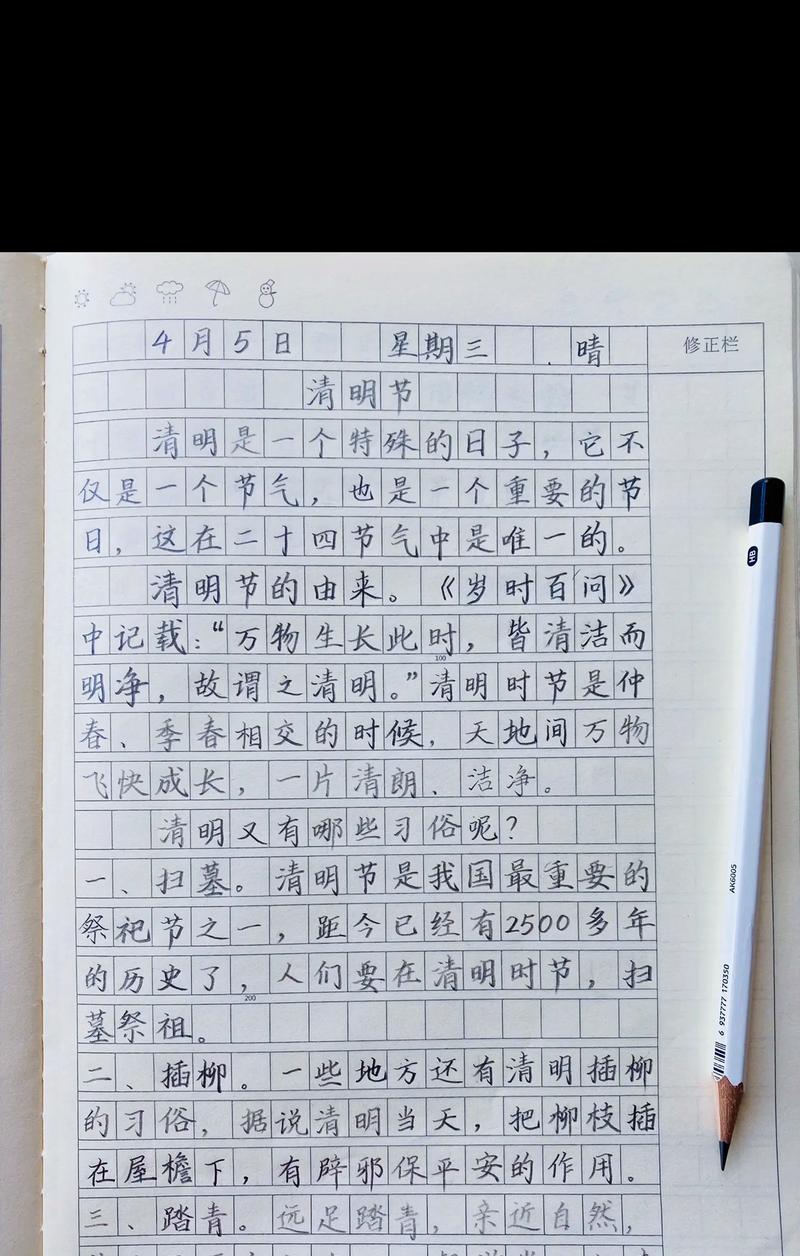 4月5日 星期三 晴 修正栏
清明节
清明是一个特殊的日子，它不
仅是一个节气，也是一个重要的节
日，这在二十四节气中是唯一的。
清明节的由来。《岁时百问》
中记载：“万物生长此时，皆清洁而
100
明净，故谓之清明。”清明时节是仲
春、季春相交的时候，天地间万物
飞快成长，一片清朗、洁净。
清明又有哪些习俗呢？
一、扫墓。清明节是我国最重要的
祭祀节之一，距今已经有2500多年
的历史了，人们要在清明时节，扫
200
墓祭祖。
二、插柳。一些地方还有清明插柳
的习俗，据说清明当天，把柳枝插
在屋檐下，有辟邪保平安的作用。
三、踏青。远足踏青，亲近自然，
HB
AK6005
6 937777 170350